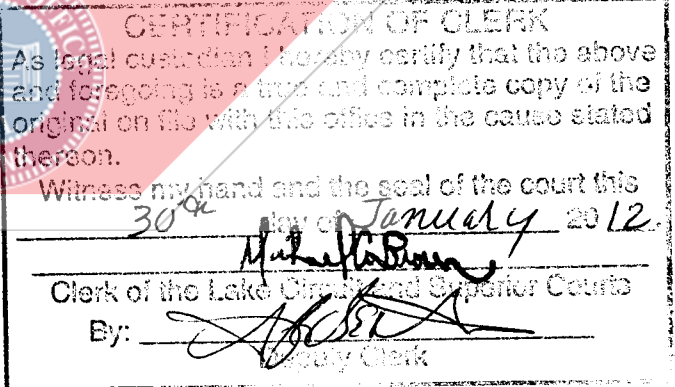 CERTIFICATION OF CLERK
As legal custodian I hereby certify that the above
and foregoing is a true and complete copy of the
original on file with this office in the cause stated
thereon.
Witness my hand and the seal of the court this
30th day of January 2012.
Clerk of the Lake Circuit and Superior Courts
By:
Deputy Clerk